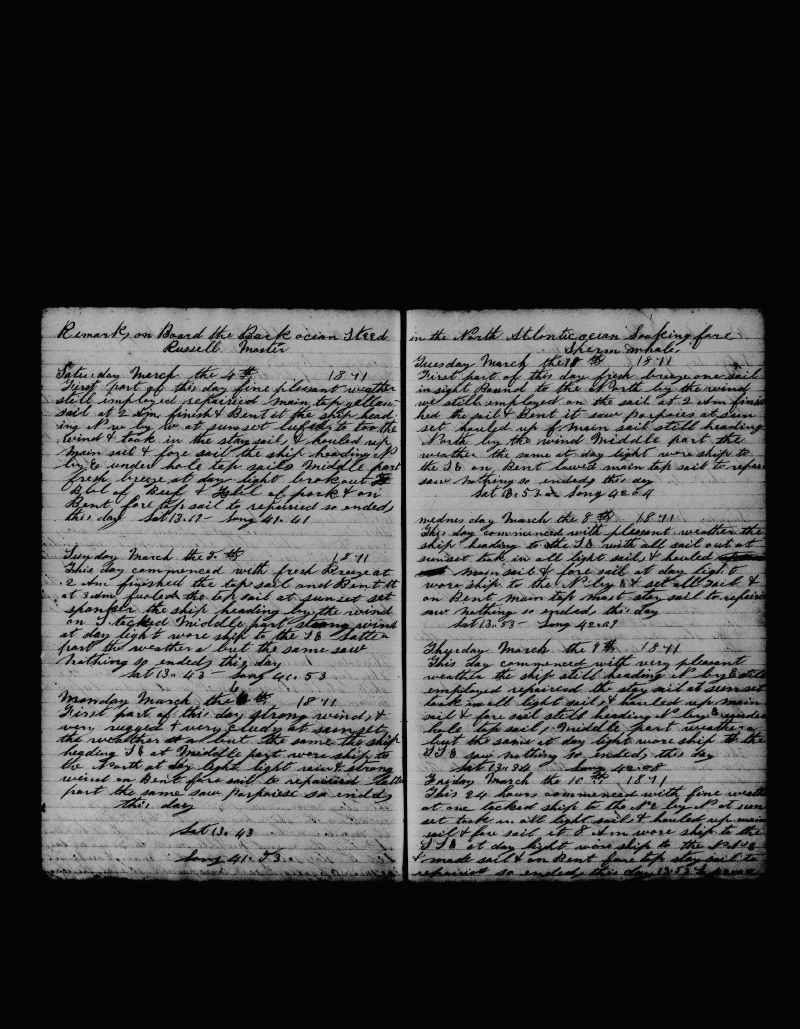 Remarks on Board the Bark ocian Steed
Russell Master
Saturday March the 4th 1871
First part of this day fine plesant weather
still employed repaireid main top gallon
sail at 2 Am finish & Bent it the ship head
ing N by W at sunset luf to the
wind & took in the stay sails & hauled up
main sail & fore sail the ship heading N
by E under hole top sails Middle part
fresh breeze at day light broke out
Bbl of Beef & Bbl of pork & on
Bent fore top sail to repaired so ended
this day Lat 13.17 Long 41.41
Sunday March the 5th 1871
This day commenced with fresh Breeze at
2 Am finished the top sail and Bent it
at 3 Am the top sail at sunset set
spanker the ship heading by the wind
on S tacked Middle part strong wind
at day light wore ship to the SE Latter
part the weather a but the same saw
Nothing so ended this day
Lat 13.43 Long 41.53
Monday March the 6th 1871
First part of this day strong winds &
very rugged & very cludy at sunset
the weather a but the same the ship
heading SE at Middle part wore ship to
the North at day light light rain & strong
wind on Bent fore sail to repaireid Latter
part the same saw Porpoise so ended
this day
Lat 13.43
Long 41.53
in the North Atlontic ocean Looking fore
Sperm whales
Tuesday March the th 1871
First part of this day fresh breze one sail
in sight Bound to the North by the wind
we still employed on the sail at 2 Am finis
hed the sail & Bent it saw porpoises at sun
set hauled up main sail still heading
North by the wind Middle part the
weather the same at day light wore ship to
the SE on Bent lower main top sail to repair
saw nothing so ended this day
Lat 13.53 Long 42.04
wednesday March the 8th 1871
This day commenced with plesent weather the
ship heading to the SE with all sail out at
sunset took in all light sails & hauled
main sail & fore sail at day light
wore ship to the N by E & set all sail &
on Bent main top mast stay sail to repaire
saw nothing so ended this day
Lat 13.53 Long 42.09
Thursday March the 9th 1871
This day commenced with very pleasant
weather the ship still heading N by E still
employed repaireid the stay sail at sunset
took in all light sails & hauled up main
sail & fore sail still heading N by E under
hole top sails Middle part weather a
but the same at day light wore ship to the
SE saw nothing so ended this day
Lat 13.54 Long 42.08
Friday March the 10th 1871
This 24 hours commenced with fine weath
at one tacked ship to the NE by N at sun
set took in all light sail & hauled up main
sail & fore sail at 8 Am wore ship to the
SSE at day light wore ship to the
& made sail & on Bent fore top stay sail to
repaireid so ended this day